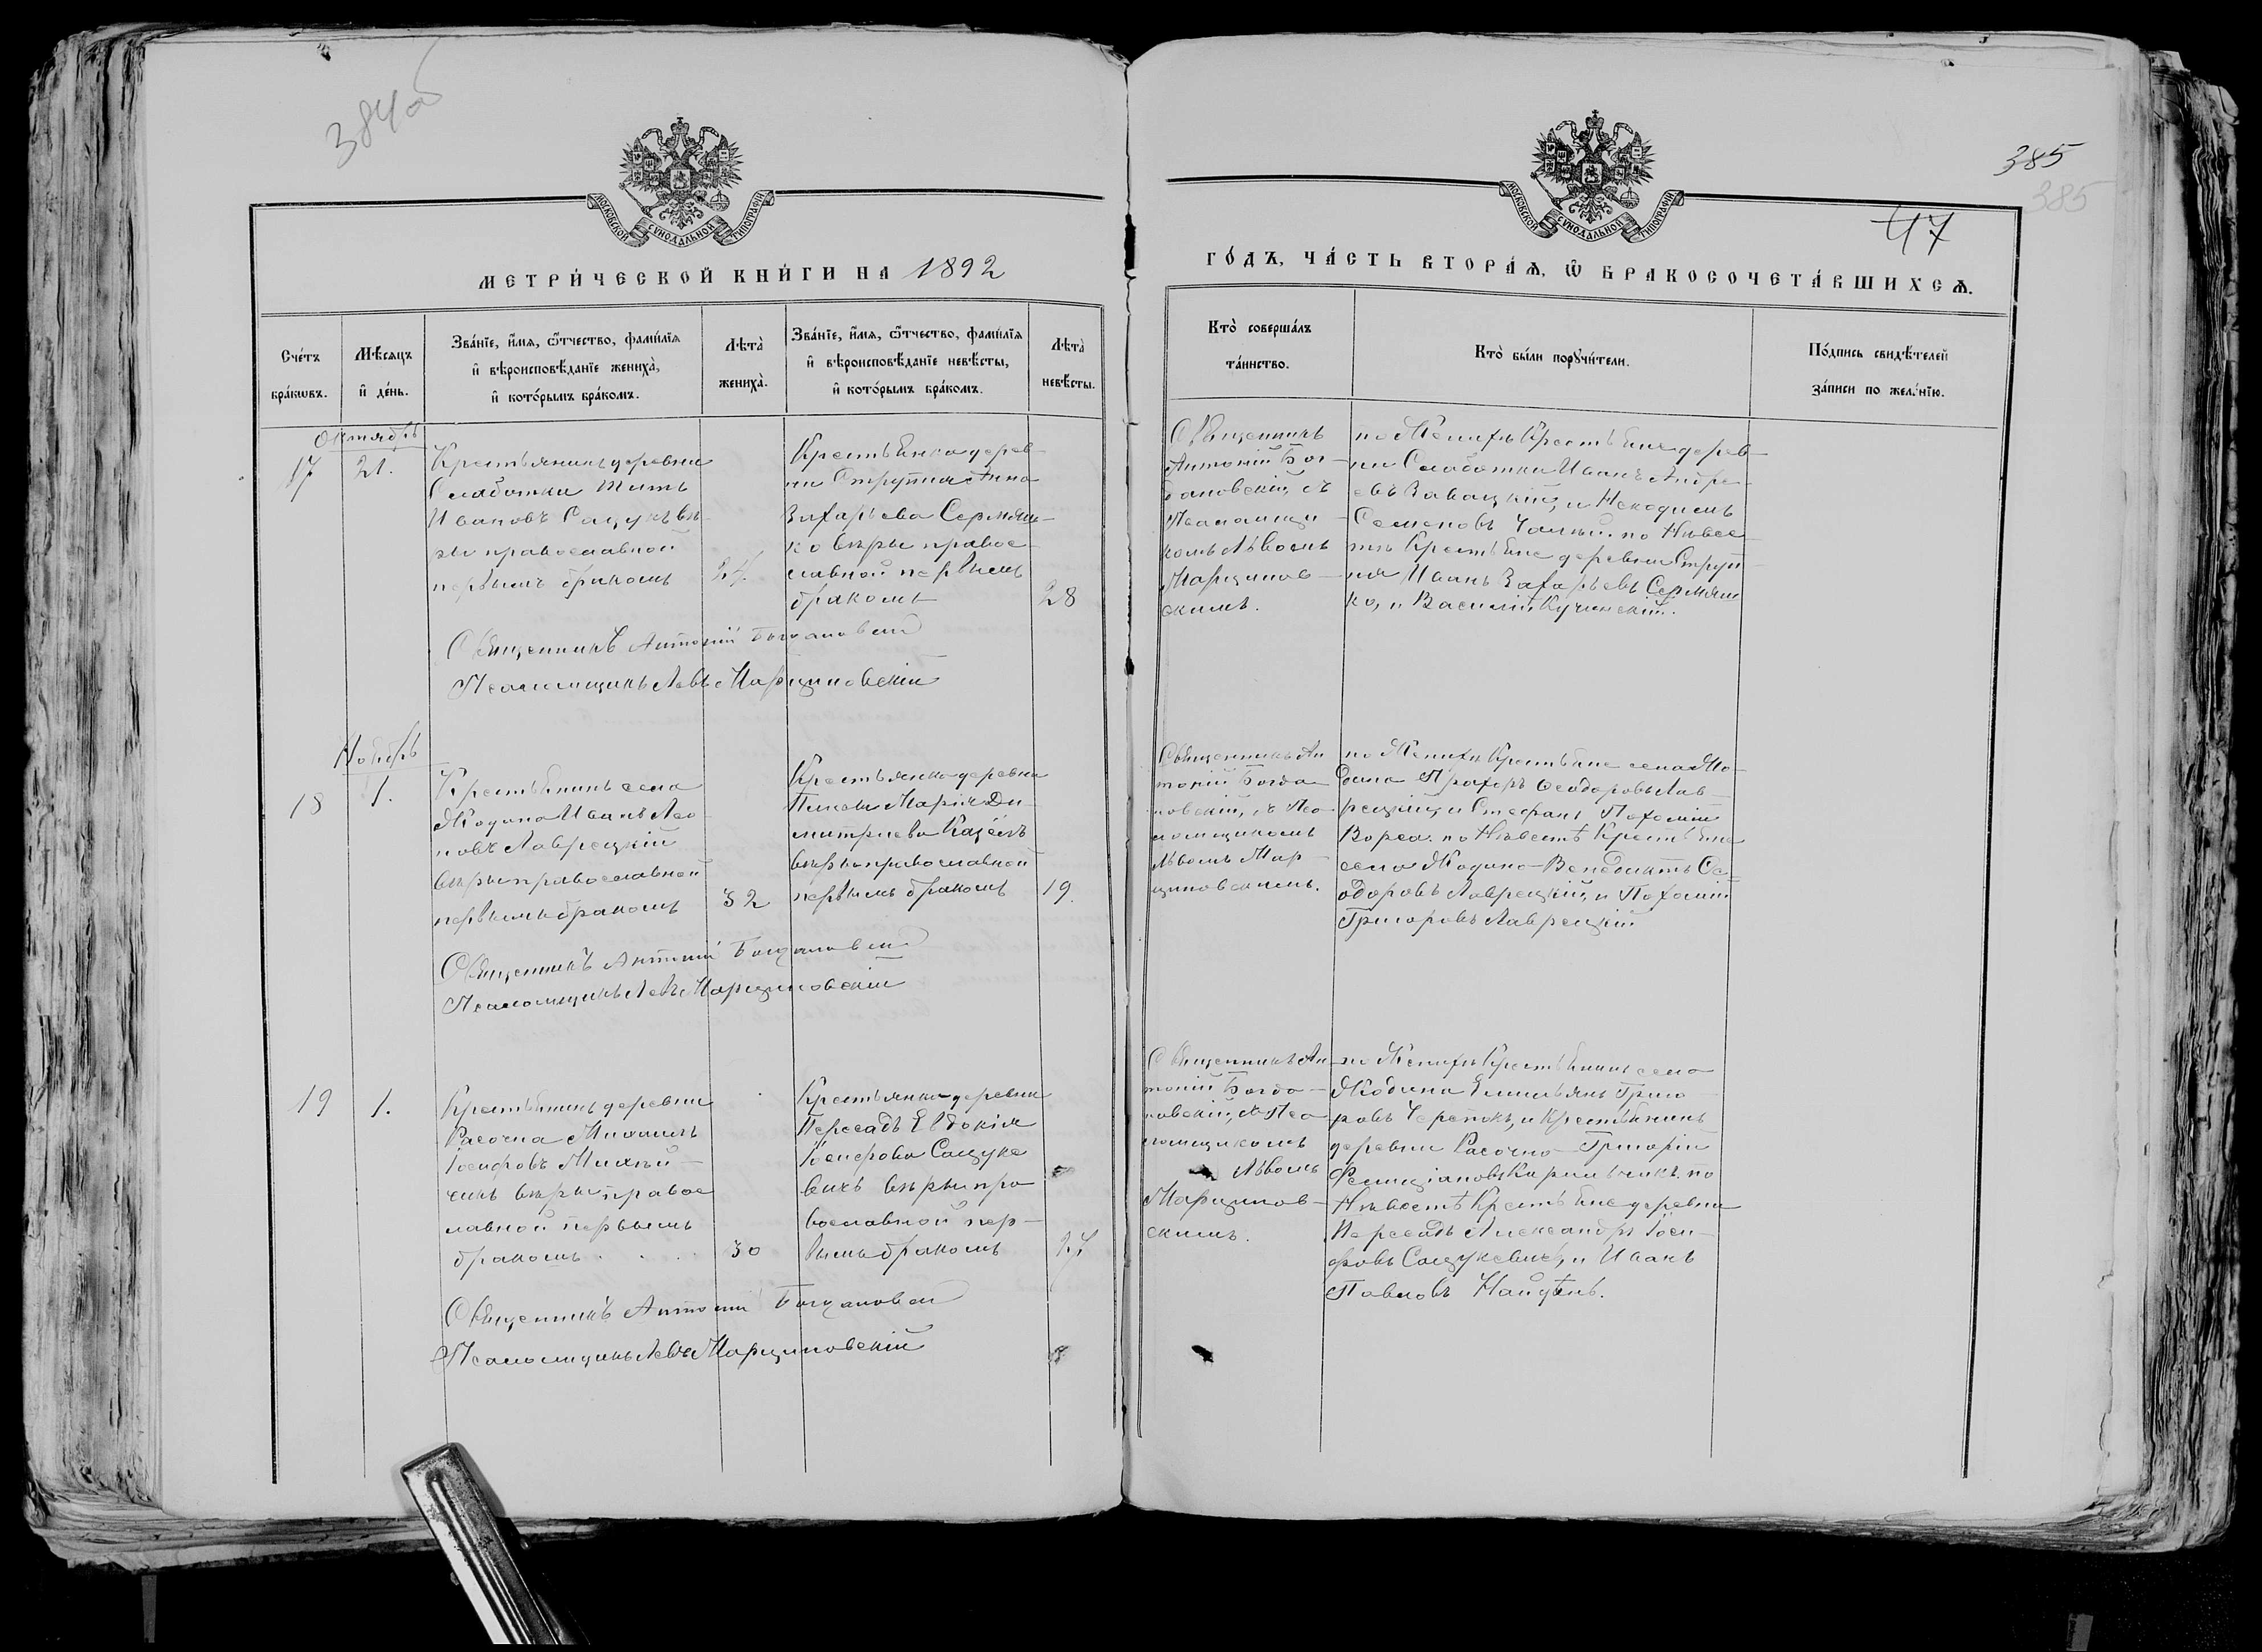 384об
МОСКОВСКОЙ СѴНОДАЛЬНОЙ ТИПОГРАФІИ
МЕТРИ́ЧЕСКОЙ КНИ́ГИ НА 1892
Сче́тъ бра́кωвъ.
Мѣ́сяцъ и҆ де́нь.
Зва́нїе, и҆́мѧ, ѻ҆́тчество, фамилїѧ
и҆ вѣроисповѣ́данїе жениха̀,
и҆ кото́рымъ бра́комъ.
Лѣта̀
жениха̀.
Зва́нїе, и҆́мѧ, ѻ҆́тчество, фамилїѧ
и҆ вѣроисповѣ́данїе невѣ́сты,
и҆ кото́рымъ бра́комъ.
Лѣта̀
невѣ́сты.
Октябрь
17
21.
Крестьянинъ деревни
Слаботки Титъ
Ивановъ Сацукъ вѣ-
ры православной
первымъ бракомъ
24.
Крестьянка дерев-
ни Струпня Анна
Захарьева Сермяж-
ко вѣры правос-
лавной первымъ
бракомъ
28
Священникъ Антоній Богдановскій
Псаломщикъ Левъ Марциновскій
Ноябрь
18
1.
Крестьянинъ села
Жодина Иванъ Лео-
новъ Лаврецкій
вѣры православной
первымъ бракомъ
32
Крестьянка деревни
Марія Ди-
митріева
вѣры православной
первымъ бракомъ
19.
Священникъ Антоній Богдановскій
Псаломщикъ Левъ Марциновскій
19
1.
Крестьянинъ деревни
Расочна Михаилъ
Іосифовъ
вѣры правос-
лавной первымъ
бракомъ
30
Крестьянка деревни
Пересадъ Евдокія
Іосифова Сацуке-
вичъ вѣры пра-
вославной пер-
вымъ бракомъ
27
Священникъ Антоній Богдановскій
Псаломщикъ Левъ Марциновскій
385
385
47
МОСКОВСКОЙ СѴНОДАЛЬНОЙ ТИПОГРАФІИ
ГО́ДЪ, ЧА́СТЬ ВТОРА́Ѧ, Ѽ БРАКОСОЧЕТА́ВШИХСѦ.
Кто̀ соверша́лъ
та́инство.
Кто̀ бы́ли порꙋчи́тели.
По́дпись свидѣ́телей
за́писи по жела́нїю.
Священникъ
Антоній Бог-
дановскій, съ
Псаломщи-
комъ Львомъ
Марцинов-
скимъ.
по Женихѣ Крестьяне дерев-
ни Слаботки Иванъ Андре-
евъ Завацкій, и Некодимъ
Семеновъ по Невѣс-
тѣ Крестьяне деревни Струп-
ня Иванъ Захарьевъ Сермяж-
ко, и Василій Кучинскій.
Священникъ Ан-
тоній Богда-
новскій, съ Пса-
ломщикомъ
Львомъ Мар-
циновскимъ.
по Женихѣ Крестьяне села Жо-
дина Прохоръ Ѳеодоровъ Лав-
рецкій, и Стефанъ Пахомій
по Невѣстѣ Крестьяне
села Жодино Венедиктъ Ѳе-
одоровъ Лаврецкій, и Пахомій
Григоровъ Лаврецкій
Священникъ Ан-
тоній Богда-
новскій, съ Пса-
ломщикомъ
Львомъ
Марцинов-
скимъ.
по Женихѣ Крестьянинъ села
Жодина Емильянъ Григо-
ровъ Черепокъ, и Крестьянинъ
деревни Расочно Григорій
Фелиціановъ по
Невѣстѣ Крестьяне деревни
Пересадъ Александръ Іоси-
фовъ Сацукевичъ, и Иванъ
Павловъ Найдёнъ.